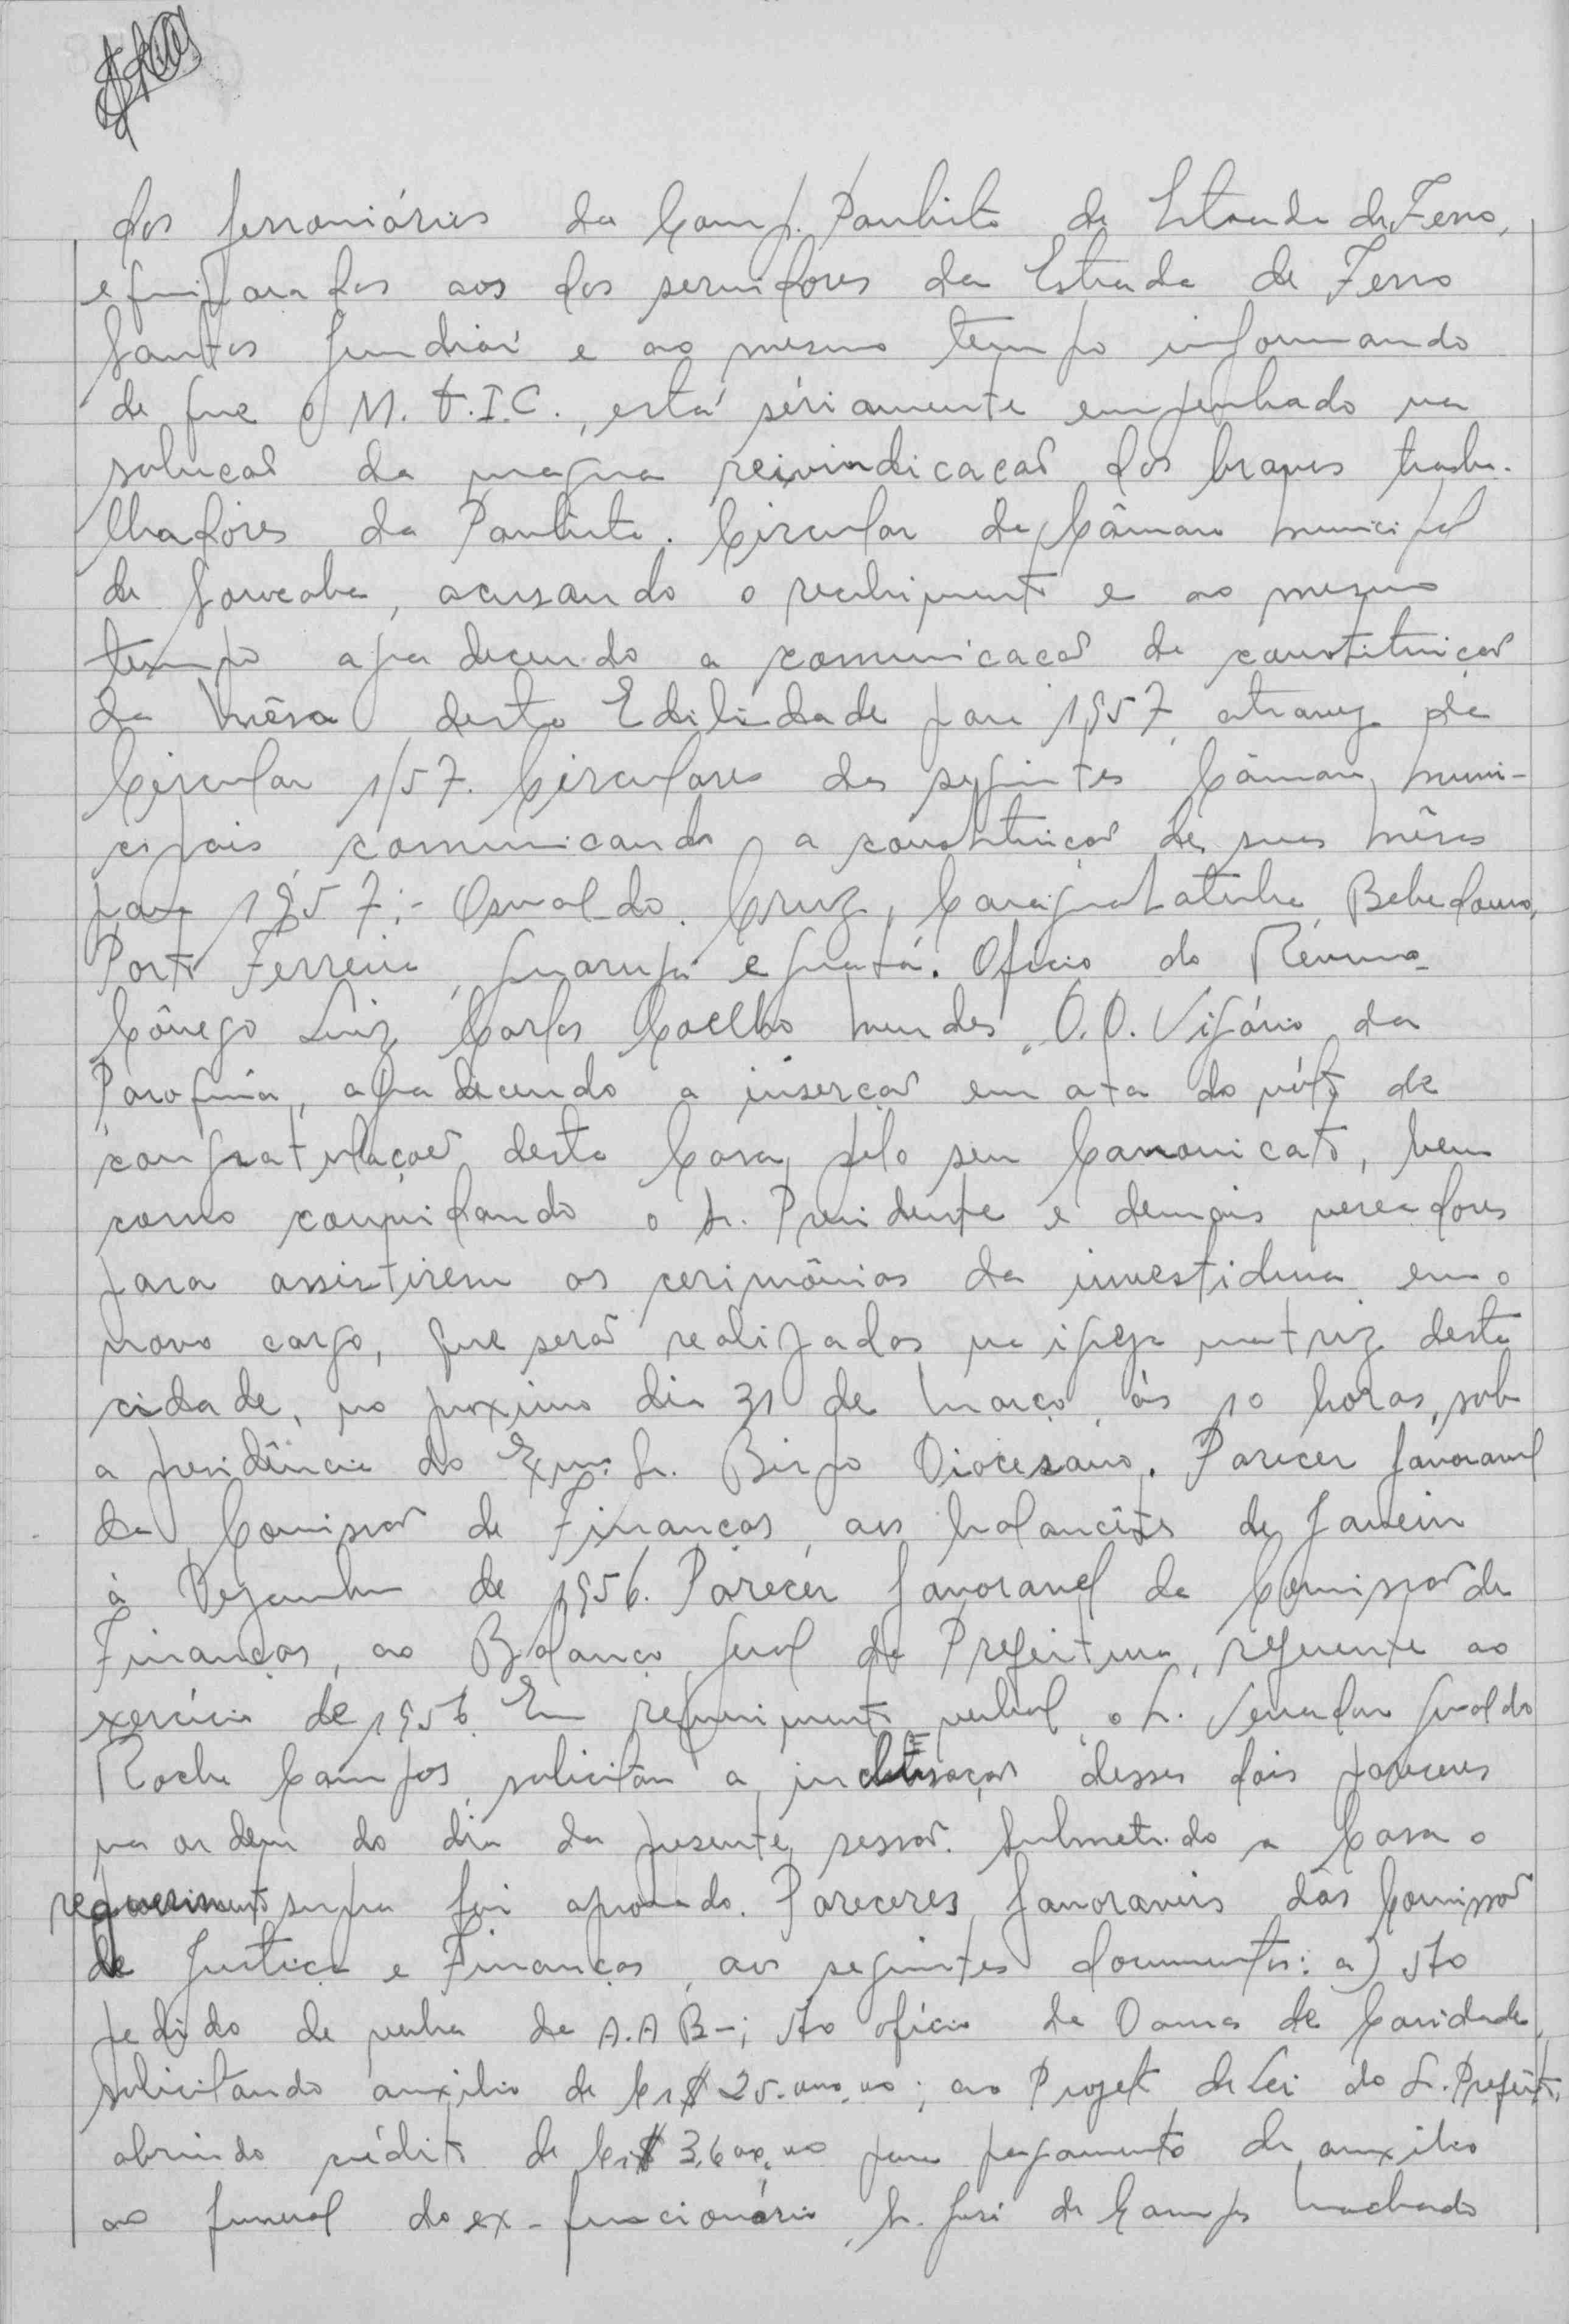 dos ferroviários da Comp. Paulista de Estrada de Ferro,
equiparados aos dos servidores da Estrada de Ferro
Santos Jundiaí e ao mesmo tempo informando
de que o M.T.I.C., está sériamente empenhado na
solução da magna reivindicação dos bravos traba-
lhadores da Paulista. Circular da Câmara Municipal
de Sorocaba, acusando o recebimento e ao mesmo
tempo agradecendo a comunicação de constituição
da Mêsa desta Edilidade para 1957, atravez da
Circular 1/57. Circulares das seguintes Câmaras Muni-
cipais comunicando a constituição de suas Mêsas
para 1957:- Osvaldo Cruz, Caraguatatuba, Bebedouro,
Porto Ferreira, Guarujá e Quatá. Ofício do Revmo.
Cônego Luiz Carlos Coelho Mendes, D.D. Vigário da
Paroquia, agradecendo a inserção em ata do vóto de
congratulações desta Casa, pelo seu Canonicato, bem
como convidando o Sr. Presidente e demais vereadores
para assistirem as cerimônias da investidura em o
novo cargo, que serão realizadas na igreja matriz desta
cidade, no proximo dia 31 de Março, às 10 horas, sob
a presidência do Exmo. Sr. Bispo Diocesano. Parecer favoravel
da Comissão de Finanças, aos balancêtes de Janeiro
à Dezembro de 1956. Parecer favoravel da Comissão de
Finanças, ao Balanço Geral da Prefeitura, referente ao
exercício de 1956. Em requerimento verbal, o Sr. Vereador Geraldo
Rocha Campos, solicitou a inclusão desses dois pareceres
na ordem do dia da presente sessão. Submetido a Casa o
requerimento supra foi aprovado. Pareceres favoraveis das Comissão
de Justiça e Finanças, aos seguintes documentos: a) Ao
pedido de verba da A.A.B-; Ao ofício da Damas de Caridade,
solicitando auxilio de Cr$ 25.000,00; ao Projeto de Lei do S. Prefeito,
abrindo crédito de Cr$ 3.600,00 para pagamento de auxilio
ao funeral do ex-funcionário, Sr. José de Campos Machado